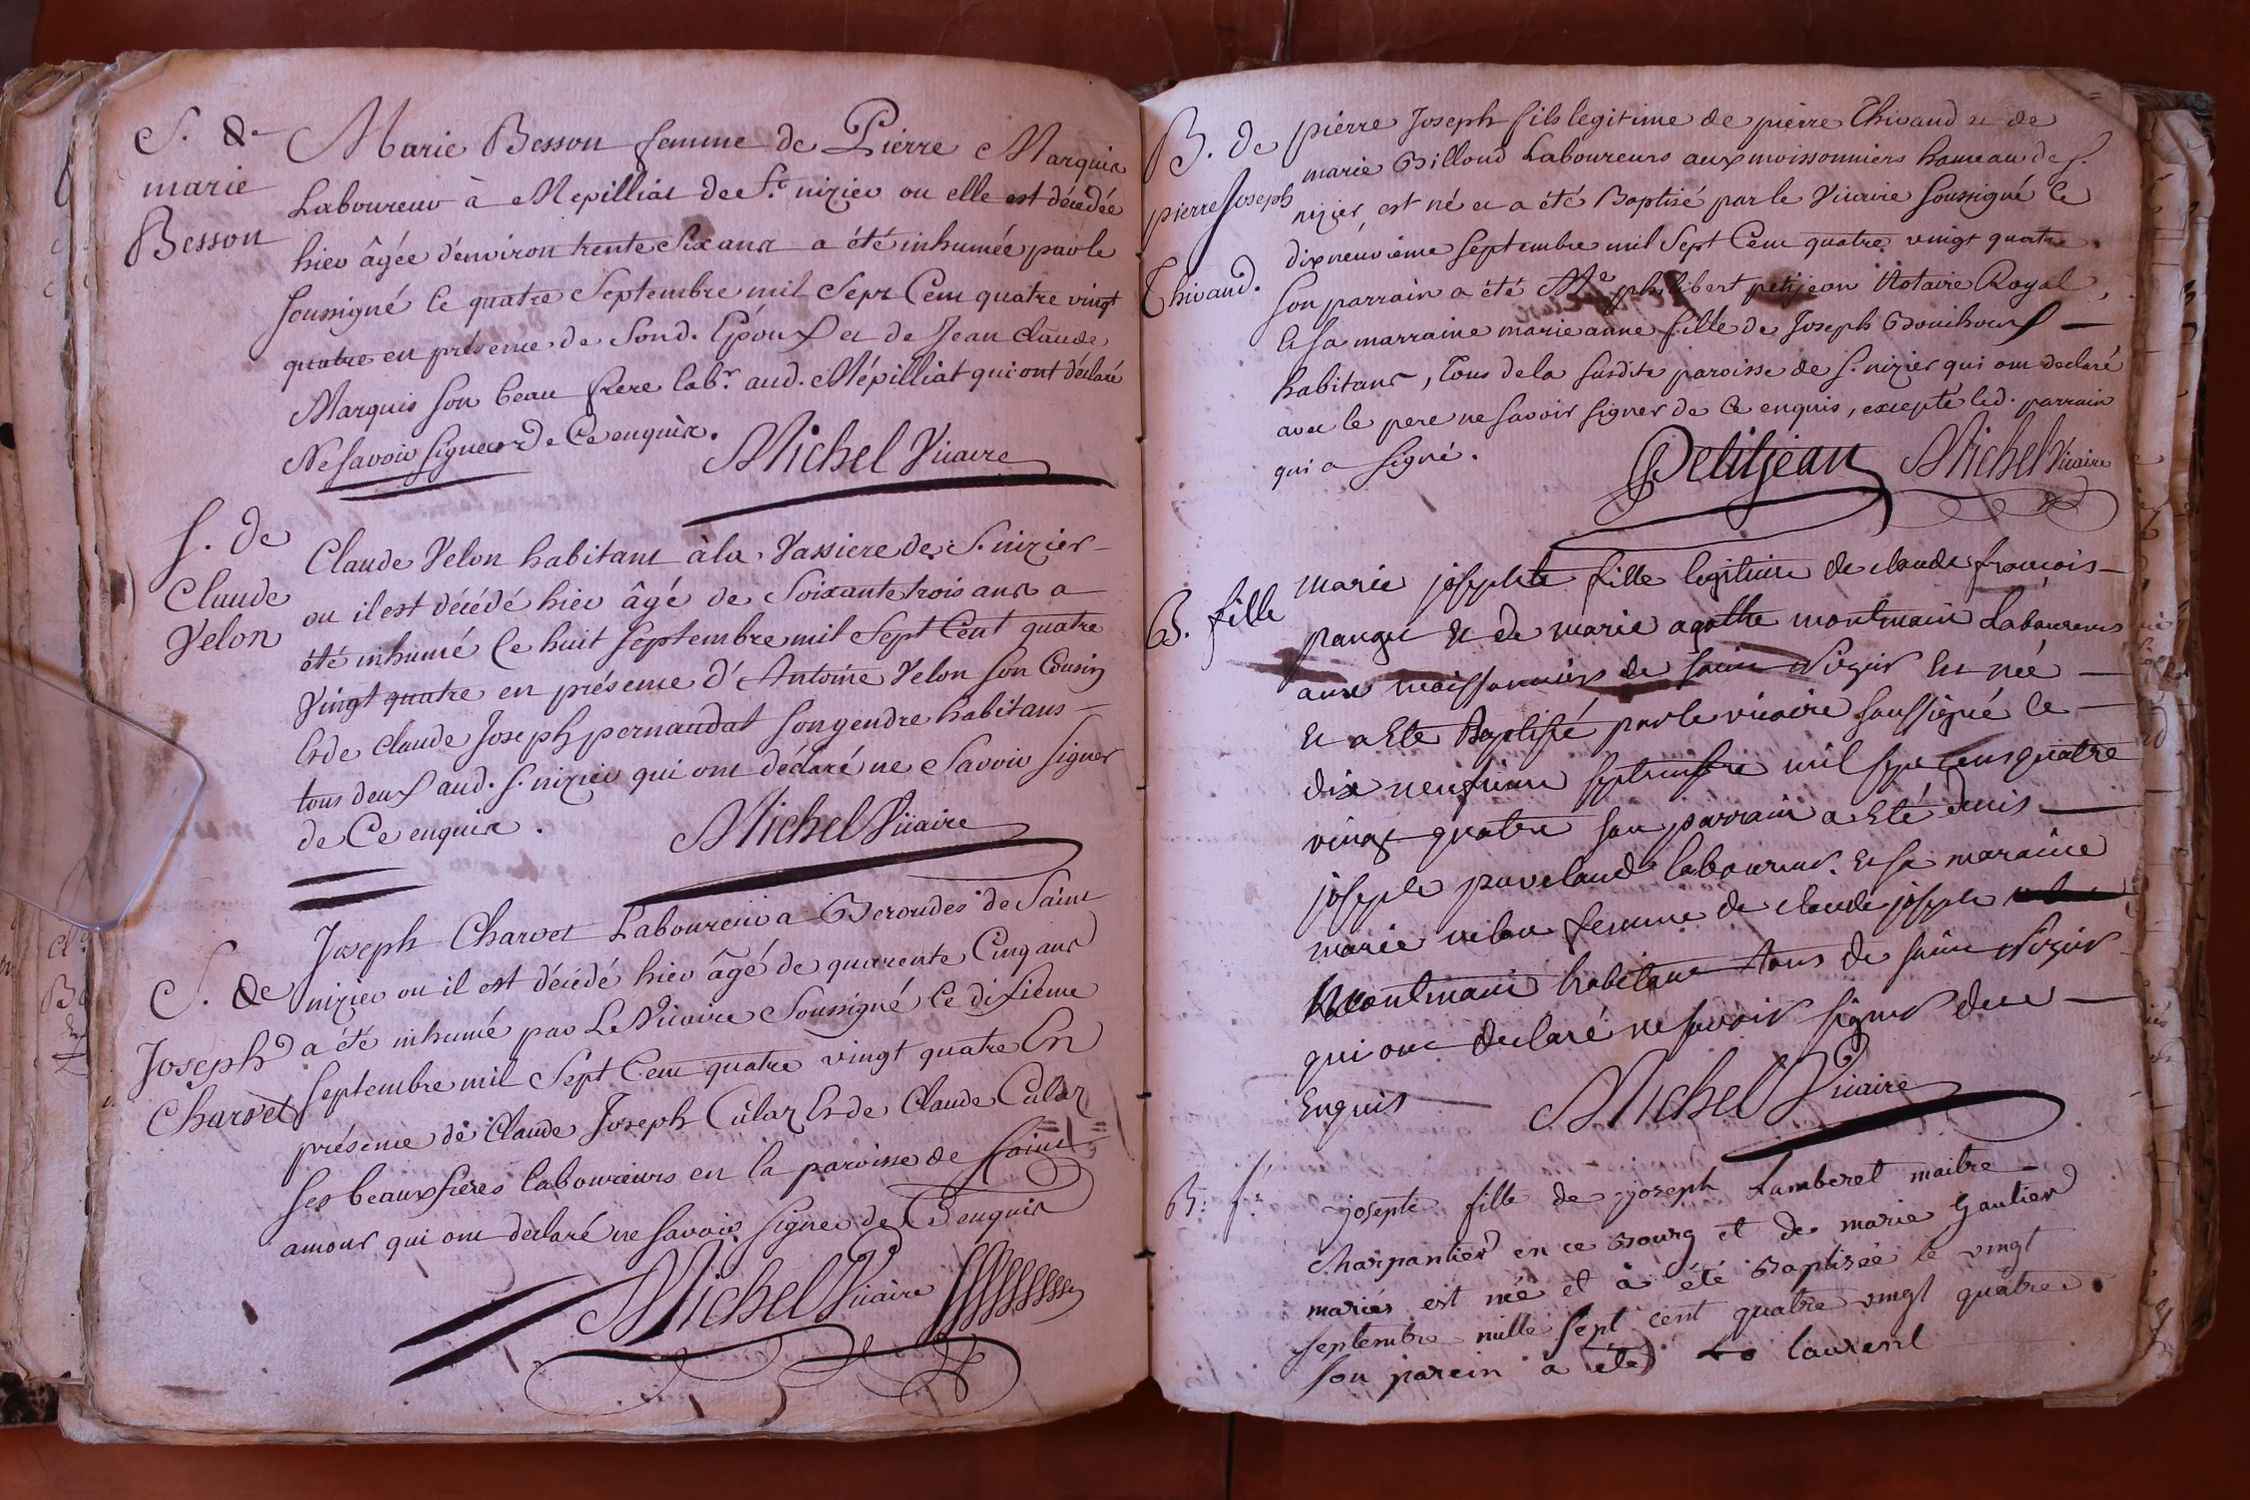 S. de
marie
Besson
Marie Besson femme de Pierre Marquis
Laboureur à Mepilliat de St. nizier ou elle est décédée
hier âgée d'environ trente Six ans a été inhumée par le
soussigné le quatre Septembre mil Sept Cent quatre vingt
quatre en présence de Sond. Epoux et de Jean Claude
Marquis son beau frere labr. aud. Mépilliat qui ont déclaré
Ne savoir signer de Ce enquis.
Michel Vicaire
S. de
Claude
Velon
Claude Velon habitant à la Vassiere de S. nizier
ou il est décédé hier âgé de Soixante trois ans a
été inhumé le huit Septembre mil Sept Cent quatre
Vingt quatre en présence d'Antoine Velon son Cousin
Et de Claude Joseph pernaudat son gendre habitans
tous deux aud. S. nizier qui ont déclaré ne Savoir signer
de Ce enquis.
Michel Vicaire
S. de
Joseph
Charvet
Joseph Charvet Laboureur a Beroudes de Saint
nizier ou il est décédé hier âgé de quarente Cinq ans
a été inhumé par Le Vicaire Soussigné le dixieme
Septembre mil Sept Cent quatre vingt quatre En
présence de Claude Joseph Culaz Et de Claude Culaz
ses beaux freres laboureurs en la paroisse de saint
amour qui ont declaré ne savoir signer de Ce enquis
Michel Vicaire
B. de
pierre Joseph
Thivaud.
pierre Joseph fils legitime de pierre Thivaud et de
marie Billoud Laboureurs aux moissonniers hameau de S.
nizier, est né et a été Baptisé par le Vicaire soussigné le
dixneuvieme septembre mil Sept Cent quatre vingt quatre
Son parrain a été Me philibert petitjean Notaire Royal,
Et sa marraine marie anne fille de Joseph
habitans, Tous de la susdite paroisse de S. nizier qui ont declaré
avec le pere ne savoir signer de Ce enquis, excepté led. parrain
qui a signé.
Petitjean Michel Vicaire
B. fille
marie josephte fille legitime de claude francois
pangu et de marie agathe montmain Laboureurs
aux moissonniers de saint Nizier est née
et a Eté Baptisé par le vicaire soussigné le
dix neufvieme septembre mil sept cens quatre
vingt quatre son parrain a Eté denis
joseph laboureur. Et sa maraine
marie velon femme de claude joseph
Montmain habitans tous de saint Nizier
qui ont declaré ne savoir signer de ce
Enquis
Michel Vicaire
B. f.
josepte fille de joseph Lamberet maitre
charpantier en ce Bourg et de marie Gautier
mariés est née et à été Baptisée le vingt
septembre mille sept cent quatre vingt quatre
son parein a été laurent